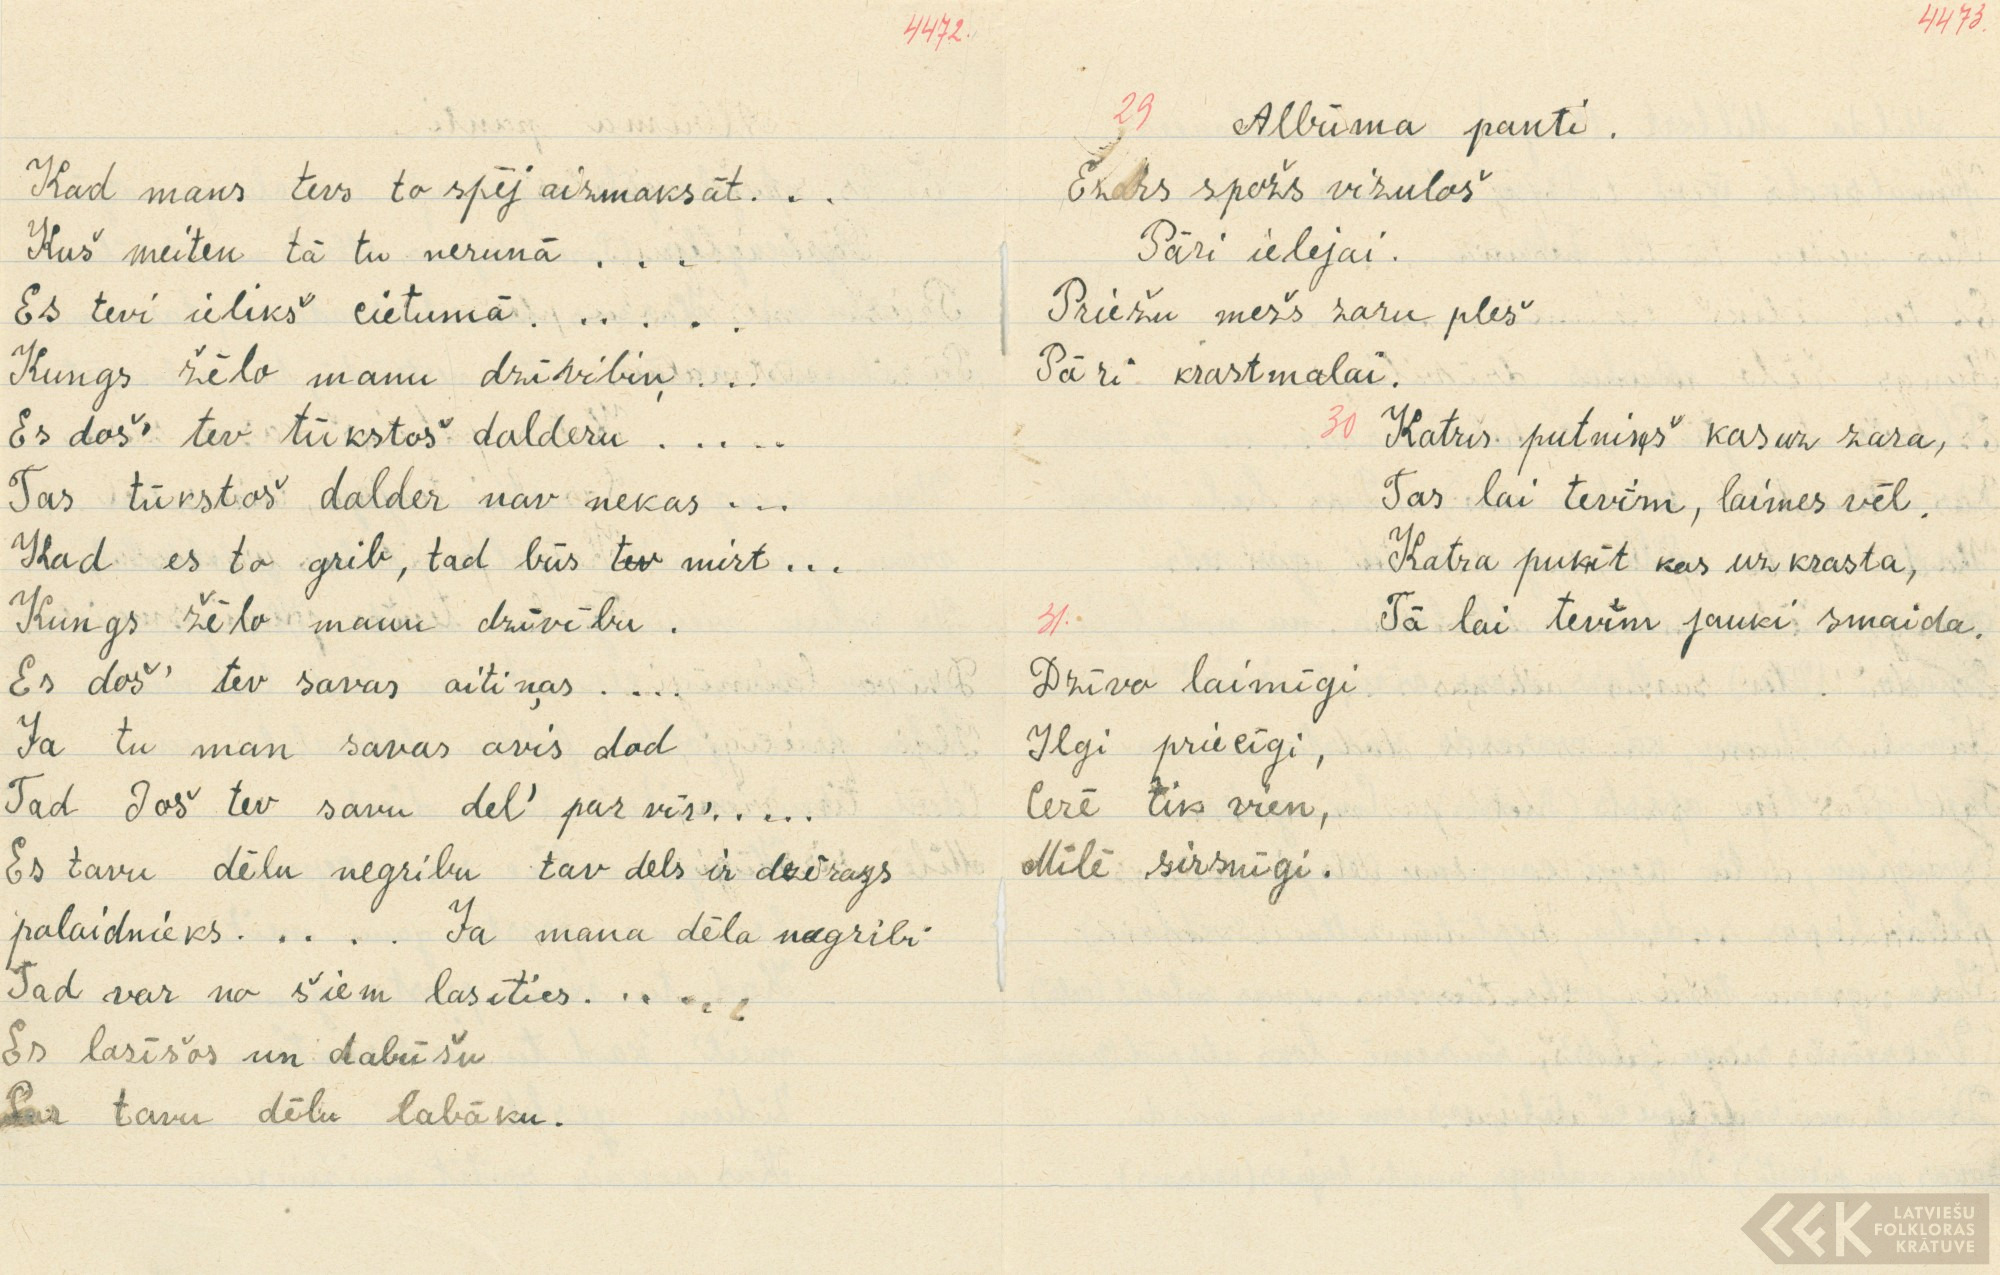 4472.
Kad mans tevs to spēj aizmaksāt. . .
Kuš meiten tā tu nerunā . . .
Es tevi ielikš cietumā. . . . . .
Kungs žēlo manu dzīvibiņ . . .
Es doš' tev tūkstoš dalderu . . . . .
Tas tūkstoš dalder nav nekas . . .
Kad es to grib, tad būs tev mirt . . .
Kungs žēlo manu dzīvību .
Es doš' tev savas aitiņas . . . .
Ja tu man savas avis dod
Tad Još tev savu del' par vīr'. . . . .
Es tavu dēlu negribu tav dels ir dzērays
palaidnieks. . . . . Ja mana dēla negribi
Tad var no šiem lasīties. . . . . .
Es lasīšos un dabūšu
Par tavu dēlu labāku.
4473.
29 Albūma panti .
Ezers spožs vizuloš
Pāri ielejai.
Priežu mežs zaru pleš
Pāri krastmalai.
30 Katrs putniņš kas uz zara,
Tas lai tevīm, laimes vēl.
Katra pukīt kas uz krasta,
Tā lai tevīm jauki smaida.
31.
Dzīvo laimīgi
Ilgi priecīgi,
Cerē tik vien,
Mīlē sirsnīgi.
LATVIEŠU
FOLKLORAS
KRĀTUVE